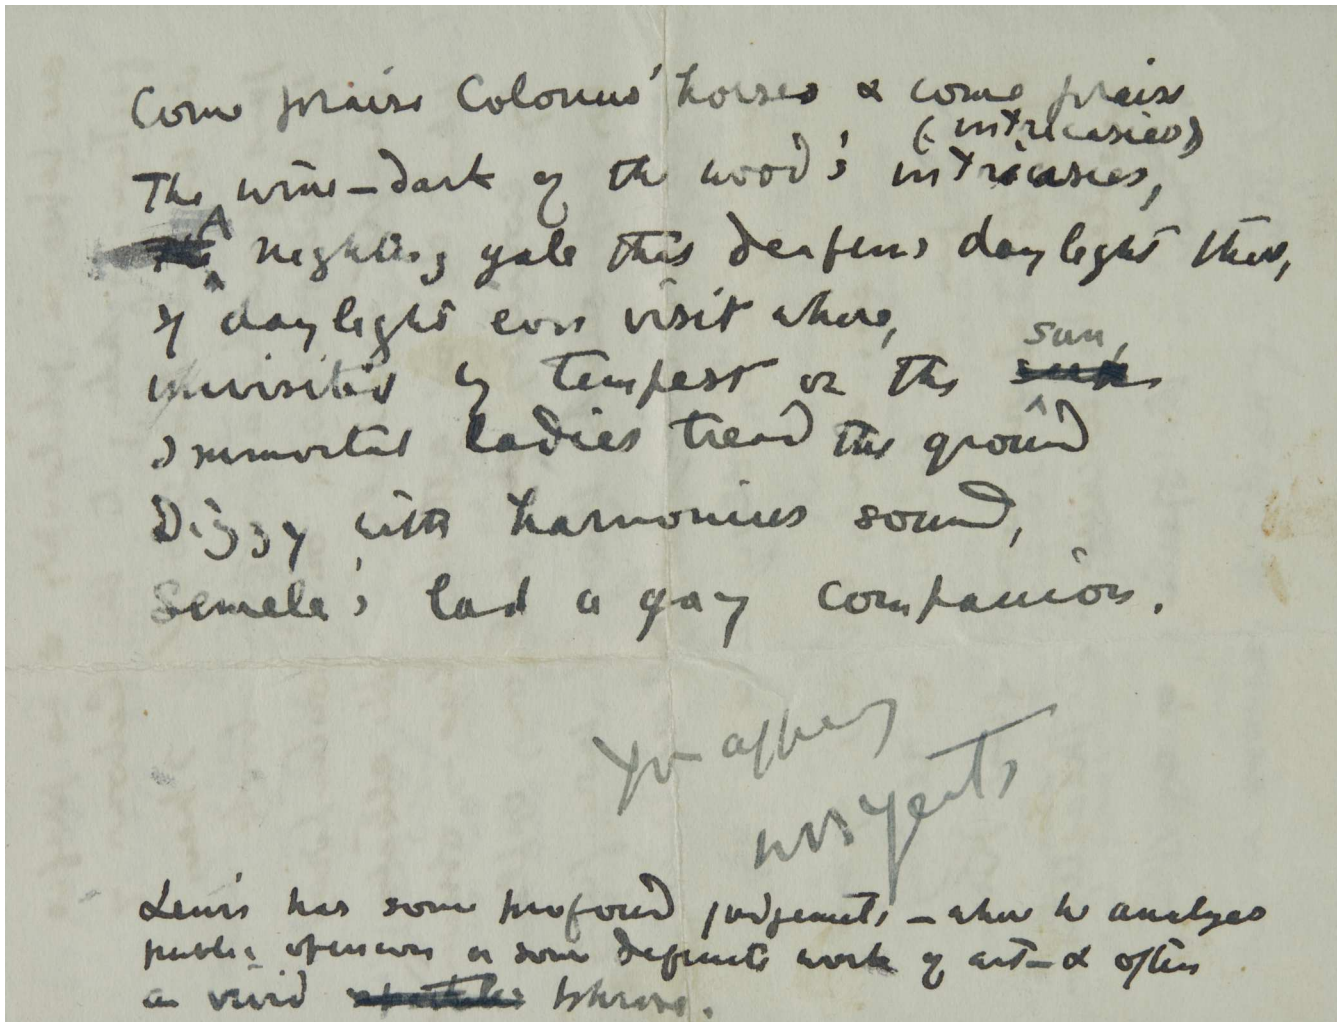 Come praise Colonus' horses & come praise
(intricasies)
The wine-dark of the wood's intricasies,
The A nightingale that deafens daylight there,
If daylight ever visit where,
unvisited by tempest or the sun,
Immortal ladies tread the ground
Dizzy with harmonius sound,
Semele's lad a gay companion.
Yrs
WB Yeats
Lewis has some profound judgements – when he analyses
public opinion or some definite work of art – & often
a vivid phrase.